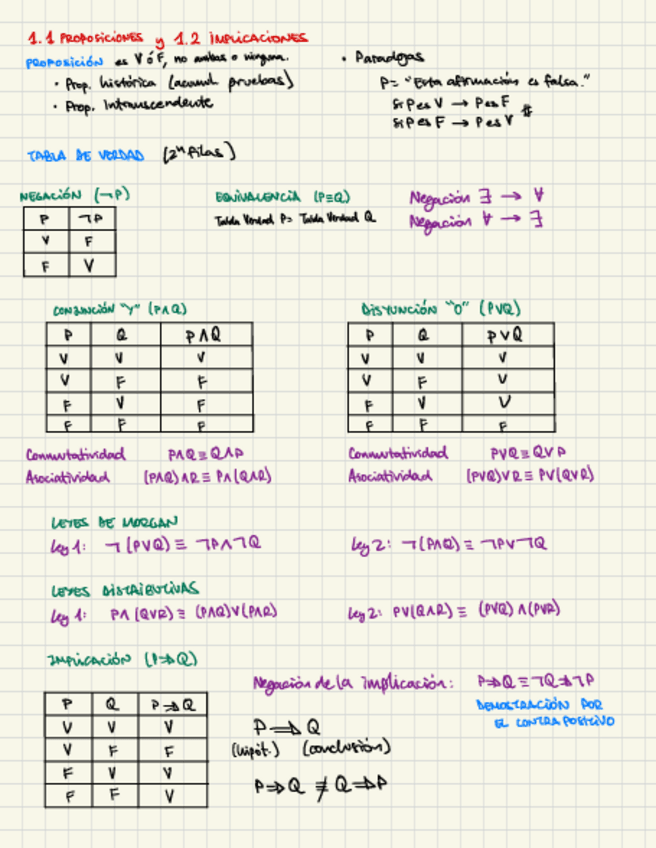 1.1 PROPOSICIONES y 1.2 IMPLICACIONES
PROPOSICIÓN es V ó F, no ambas o ninguna.
· Prop. histórica (acumul pruebas)
· Prop. Intranscendente
· Paradojas
P= "Esta afirmación es falsa."
Si P es V → P es F
Si P es F → P es V #
TABLA DE VERDAD (2ⁿ filas)
NEGACIÓN (¬P)
P ¬P
V F
F V
EQUIVALENCIA (P≡Q)
Tabla Verdad P = Tabla Verdad Q
Negación ∃ → ∀
Negación ∀ → ∃
CONJUNCIÓN "Y" (P∧Q)
P Q P∧Q
V V V
V F F
F V F
F F F
DISYUNCIÓN "O" (P∨Q)
P Q P∨Q
V V V
V F V
F V V
F F F
Conmutatividad P∧Q≡Q∧P
Asociatividad (P∧Q)∧R≡P∧(Q∧R)
Conmutatividad P∨Q≡Q∨P
Asociatividad (P∨Q)∨R≡P∨(Q∨R)
LEYES DE MORGAN
Ley 1: ¬(P∨Q)≡¬P∧¬Q
Ley 2: ¬(P∧Q)≡¬P∨¬Q
LEYES DISTRIBUTIVAS
Ley 1: P∧(Q∨R)≡(P∧Q)∨(P∧R)
Ley 2: P∨(Q∧R)≡(P∨Q)∧(P∨R)
IMPLICACIÓN (P⇒Q)
P Q P⇒Q
V V V
V F F
F V V
F F V
Negación de la implicación: P⇒Q≡¬Q⇒¬P
DEMOSTRACIÓN POR
EL CONTRAPOSITIVO
P⇒Q
(hipót.) (conclusión)
P⇒Q≢Q⇒P